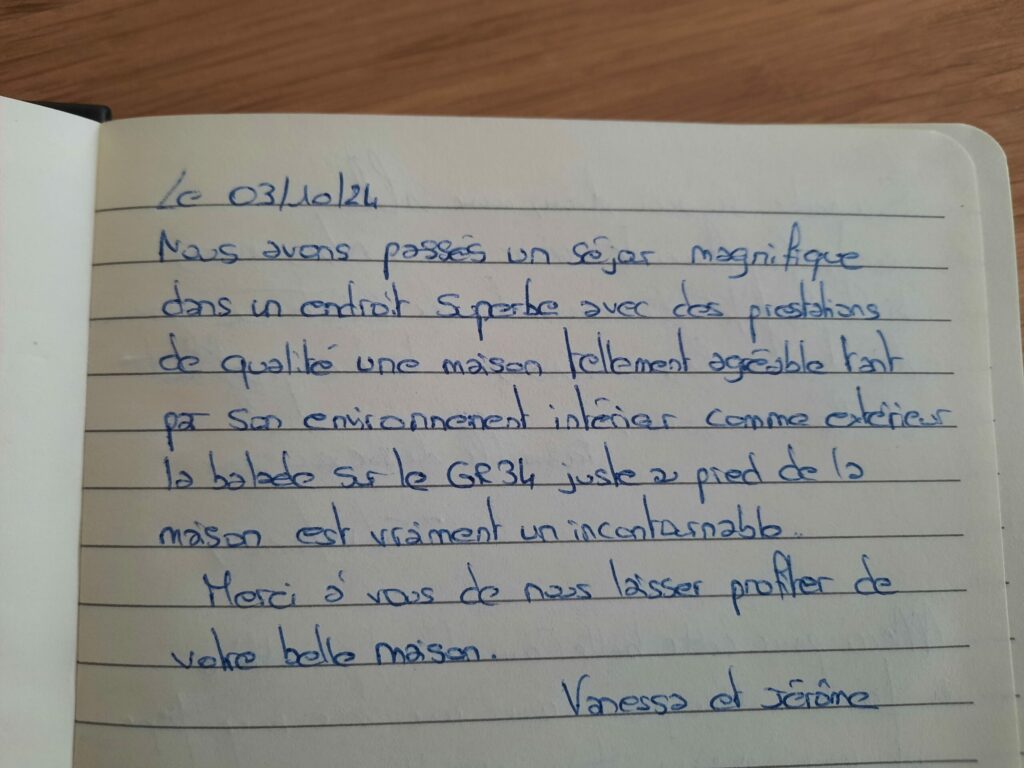 Le 03/10/24
Nous avons passés un séjour magnifique
dans un endroit superbe avec des prestations
de qualité une maison tellement agréable tant
par son environnement intérieur comme extérieur
la balade sur le GR34 juste a pied de la
maison est vraiment un incontournable.
Merci à vous de nous laisser profiter de
votre belle maison.
Vanessa et Jérôme